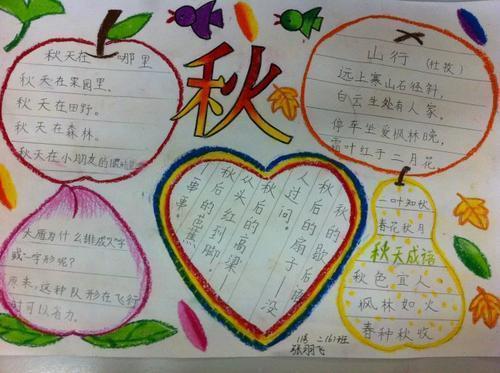 秋天在 哪里
秋天在果园里。
秋天在田野。
秋天在森林。
秋天在小朋友的
秋
山行 (杜牧)
远上寒山石径斜,
白云生处有人家,
停车坐爱枫林晚,
霜叶红于二月花
大雁为什么排成人字
或一字形呢?
原来,这种队形在飞行
时可以省力.
秋的歇后语
秋后的扇子——没
人过问。
秋后的高粱——
从头红到脚。
秋后的芭蕉
一串串。
一叶知秋
春花秋月
秋天成语
秋色宜人
枫林如火
春种秋收
二(6)班
张翔飞